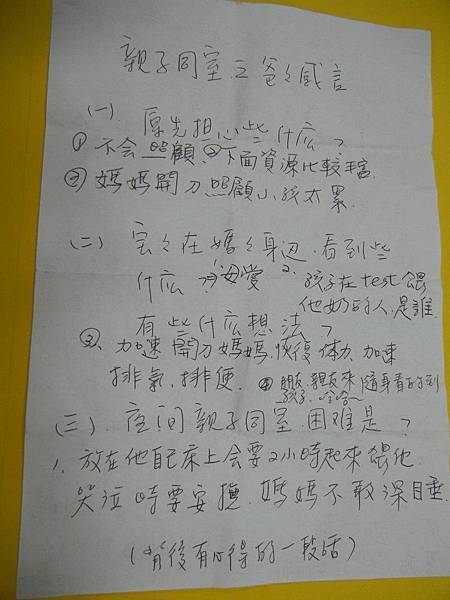 親子同室之爸々感言
(一). 原先担心些什庅?
① 不会照顧. ② 下面資源比較丰富.
③ 媽媽開刀照顧小孩太累.
(二) 宝々在媽々身边.看到些
什庅? 1. 母愛 2. 孩子在test餵
他奶的人,是誰.
有些什庅想法?
③、加速開刀媽媽恢復体力.加速
排氣、排便. ④ 親友來隨身看的到
孩子.哈哈~
(三). 夜间親子同室.困难是?
1. 放在他自己床上会要2小時起來餵他
哭泣時要安撫.媽媽不敢深睡.
(背後有心得的一段話)